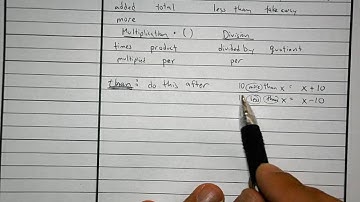 added total less than take away
more
Multiplication • ( ) Division
times product divided by quotient
multiplied per per
than: do this after 10 more than x = x + 10
10 less than x = x - 10